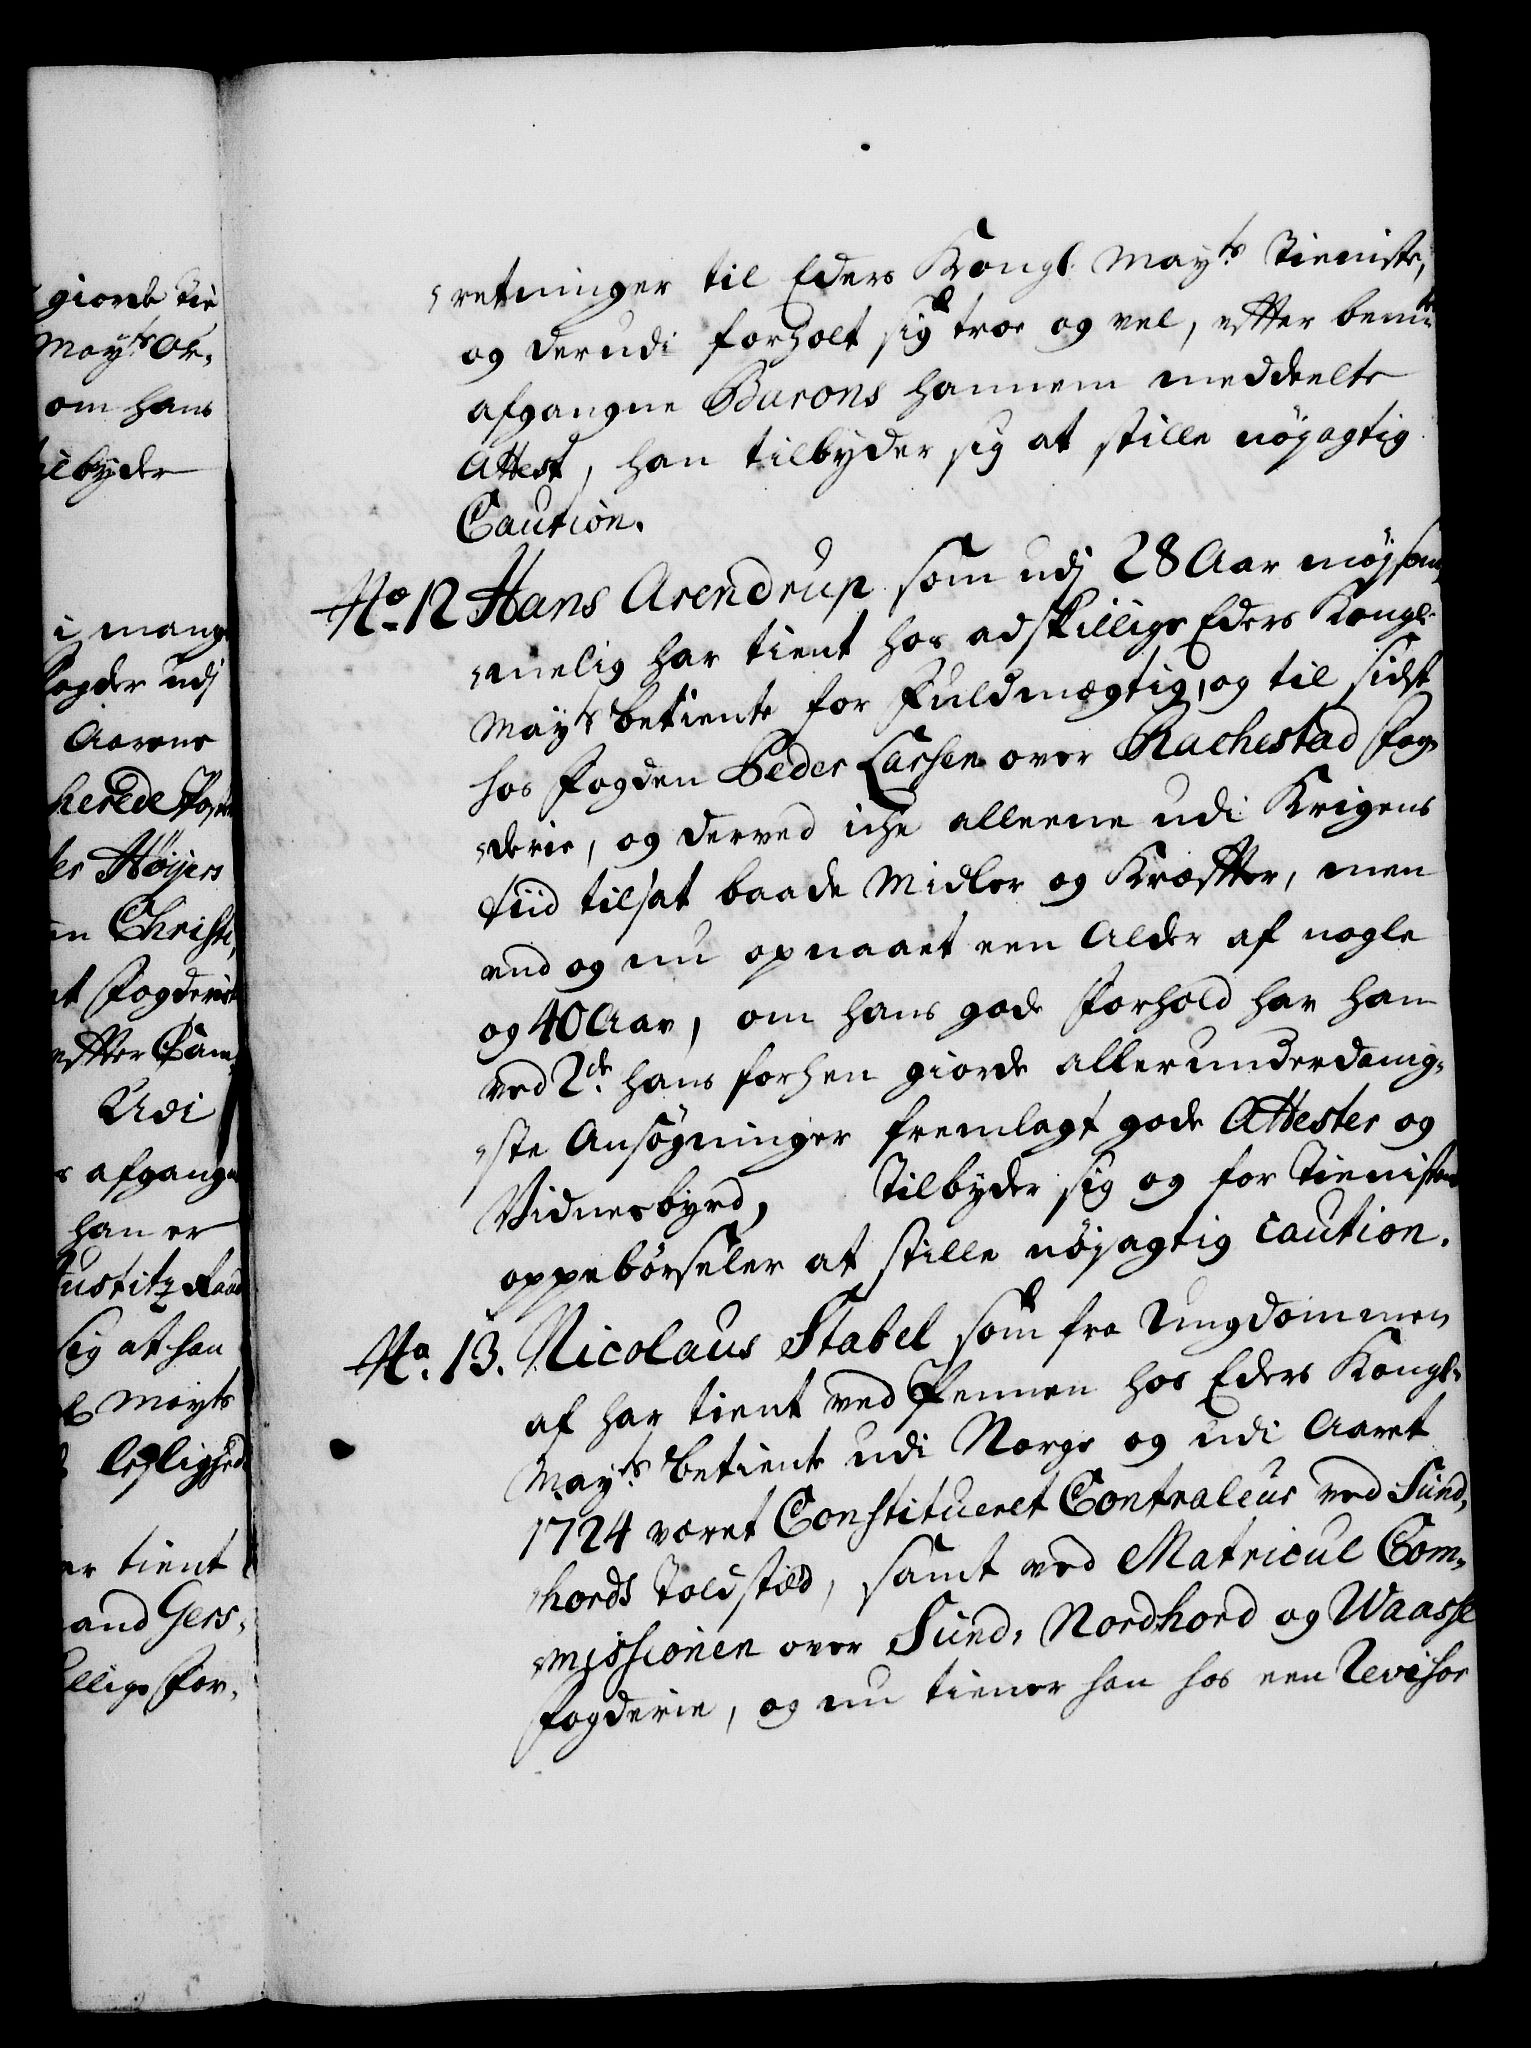 giorde tie
Mayts Ob,
om hans
ilbyder
i mange
fogder udj
Aarene
herede Fog
ler Høyers
en Christi,
nt Fogderie
effter Cam,
Udi
s afgangne
han er
Justitz Raad
sig at han
Mayts
leylighed
er tient
and Gers,
llige For,
retninger til Eders Kongl. Mayts Tieniste,
og derudi forholt sig troe og vel, efter bemte
afgangne Barons hannem meddeelte
Attest, han tilbyder sig at stille nöyagtig
Caution.
No. 12 Hans Arendrup som udj 28 Aar möysom,
melig har tient hos adskillige Eders Kongl.
Mayts betiente for Fuldmægtig, og til sidst
hos Fogden Peder Larsen over Rachestad Fog,
derie, og derved iche alleene udi Krigens
tiid tilsat baade Midler og Kræffter, men
end og nu opnaaet een Alder af nogle
og 40 Aar, om hans gode Forhold har han
ved 2de hans forhen giorde allerunderdanig,
ste Ansögninger fremlagt gode Attester og
Vidnesbyrd, Tilbyder sig og for Tienisten
oppebörseler at stille nöyagtig caution.
No. 13. Nicolaus Stabel som fra Ungdommen
af har tient ved Pennen hos Eders Kongl.
Mayts betiente udi Norge og udi Aaret
1724 været Constitueret Contraleur ved Sund,
hords Toldsted, samt ved Matricul Com,
missionen over Sund, Nordhord og Waasse
Fogderie, og nu tiener han hos een Revisor